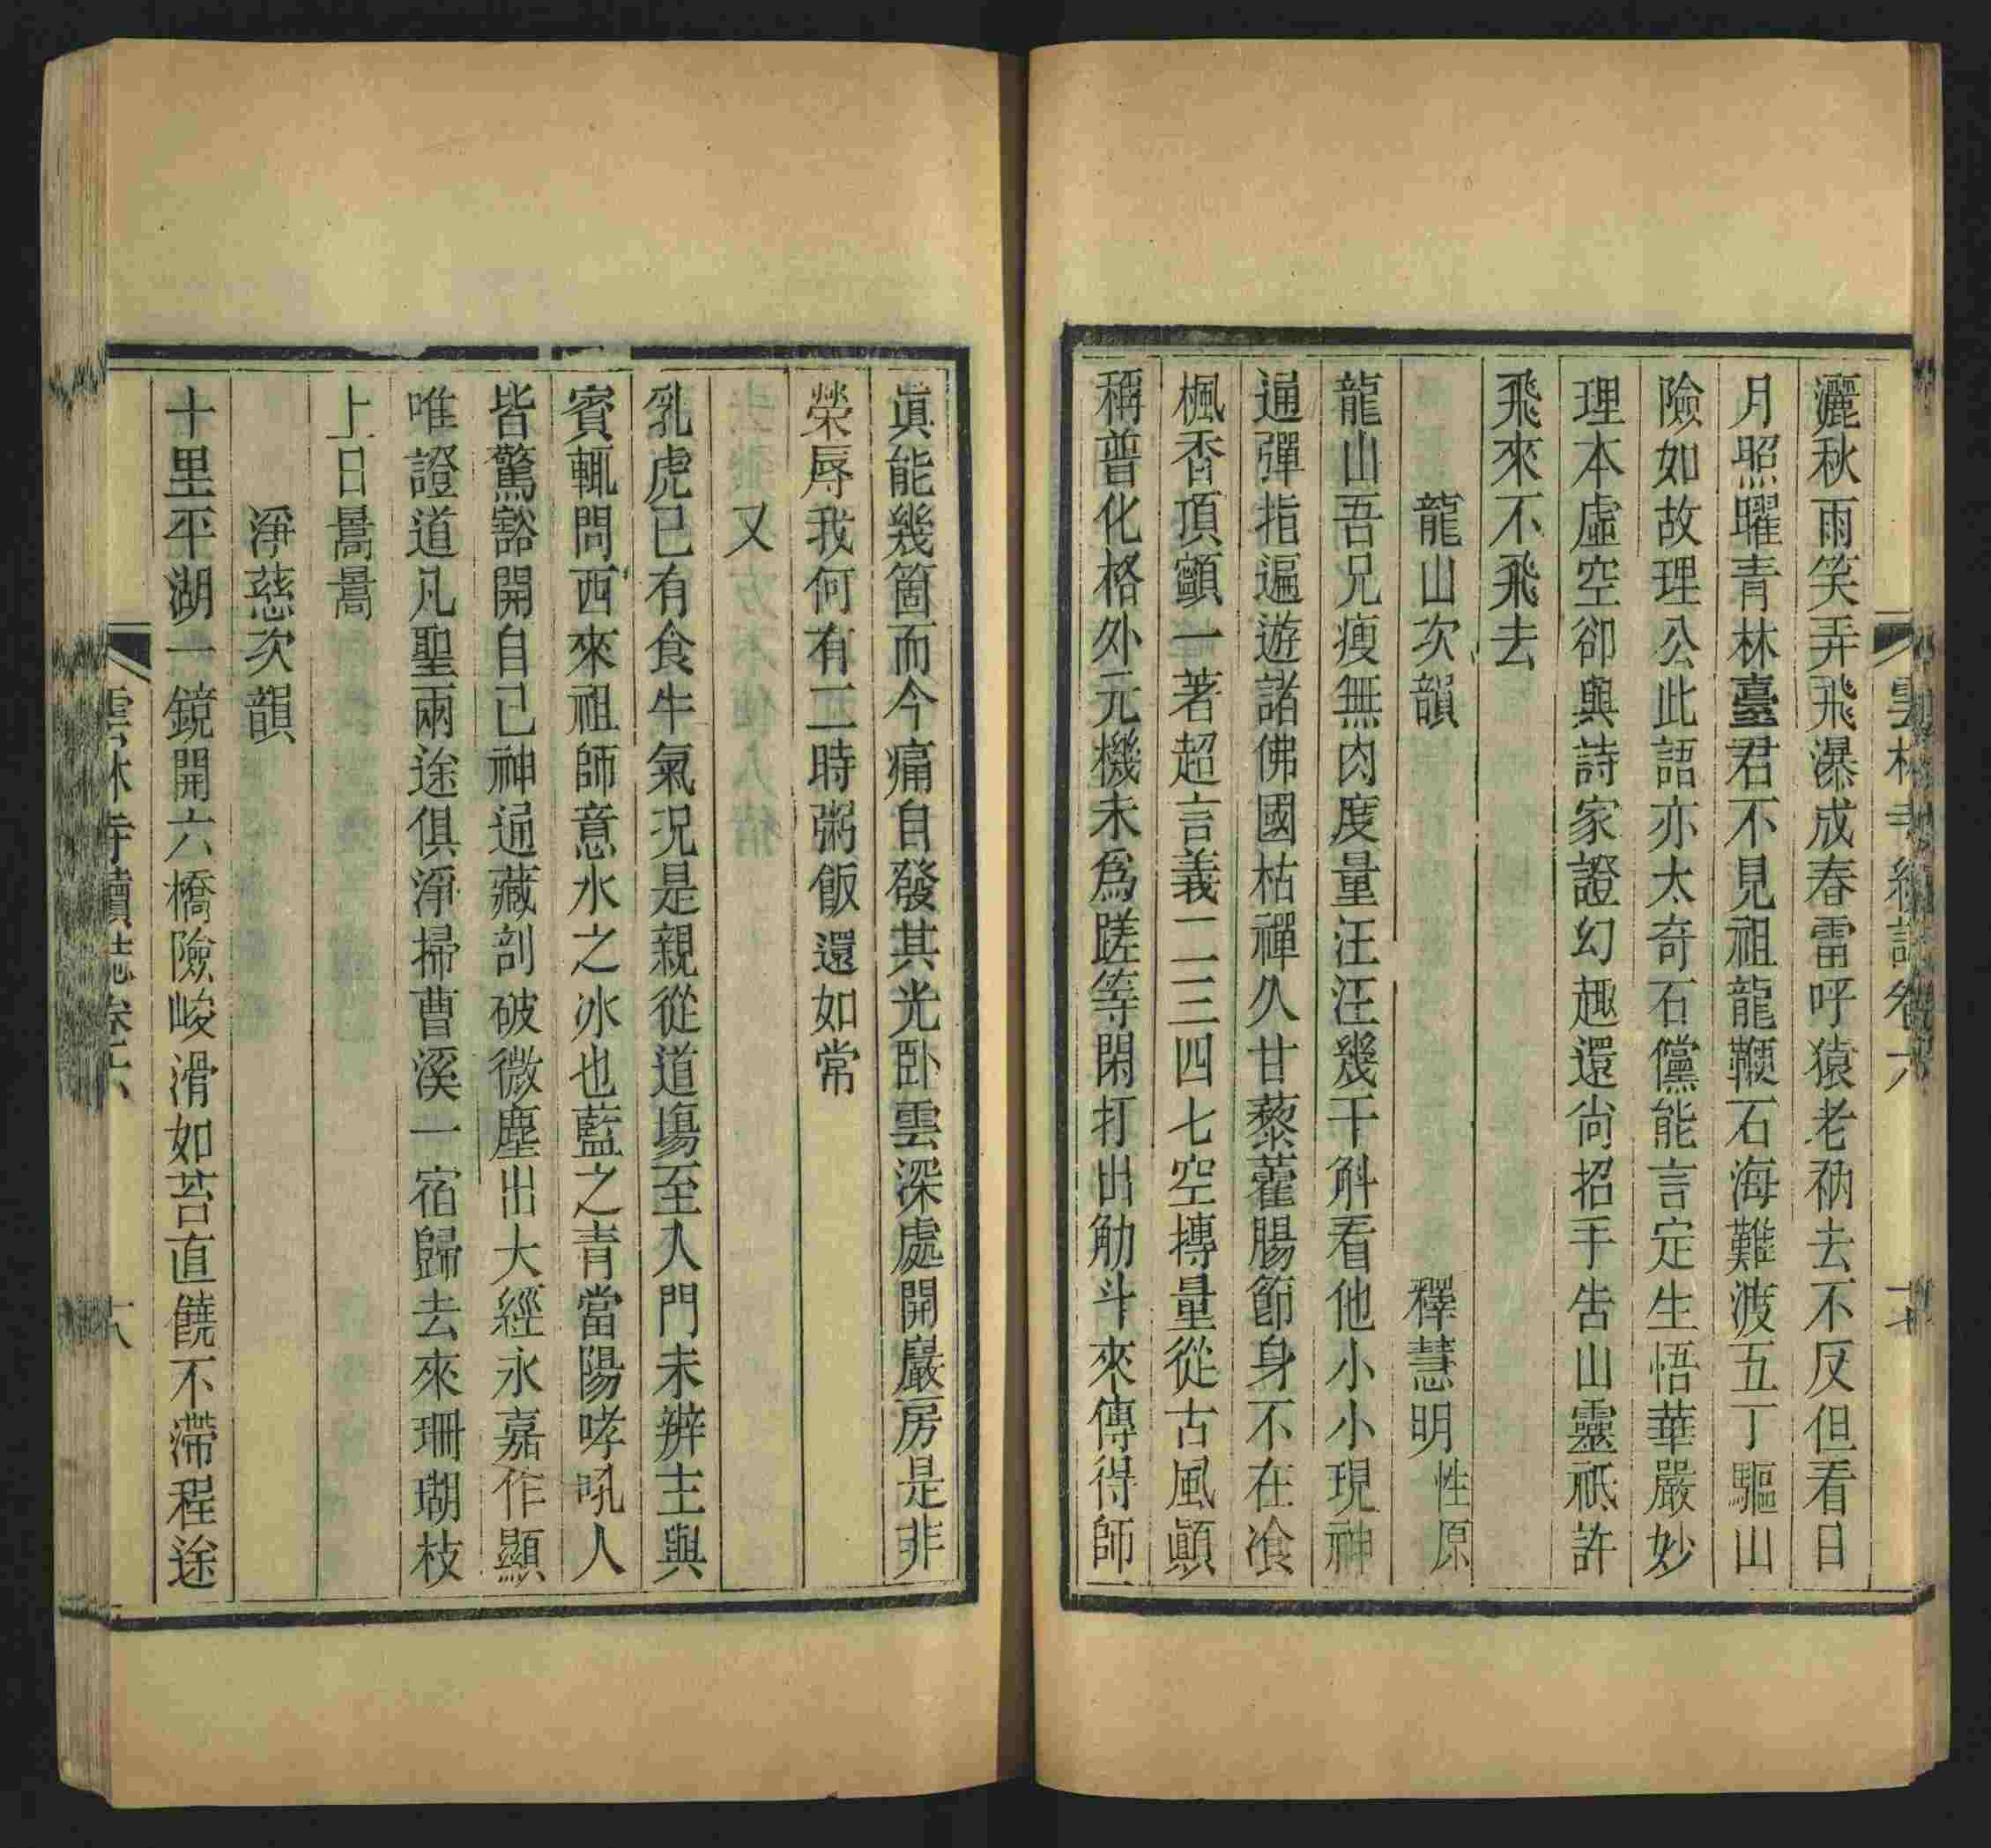 灑秋雨笑弄飛瀑成春雷呼猿老衲去不反但看日
月照曜青林臺君不見祖龍鞭石海難渡五丁驅山
險如故理公此語亦太奇石儻能言定生悟華嚴妙
理本虛空卻與詩家證幻趣還尙招手告山靈祗許
飛來不飛去
龍山次韻 釋慧明性原
龍山吾兄瘦無肉度量汪汪幾千斛看他小小現神
通彈指遍遊諸佛國枯禪久甘藜藿腸節身不在飡
楓香項顫一著超言義二三四七空摶量從古風顚
稱普化格外元機未爲蹉等閑打出觔斗來傳得師
眞能幾箇而今痛自發其光卧雲深處開巖房是非
榮辱我何有二時粥飯還如常
又
乳虎已有食牛氣況是親從道場至入門未辨主與
賓輒問西來祖師意水之冰也藍之青當陽哮吼人
皆驚豁開自己神通藏剖破微塵出大經永嘉作顯
唯證道凡聖兩途俱淨掃曹溪一宿歸去來珊瑚枝
上日暠暠
淨慈次韻
十里平湖一鏡開六橋險峻滑如苔直饒不滯程途
雲林寺續誌卷六
十八